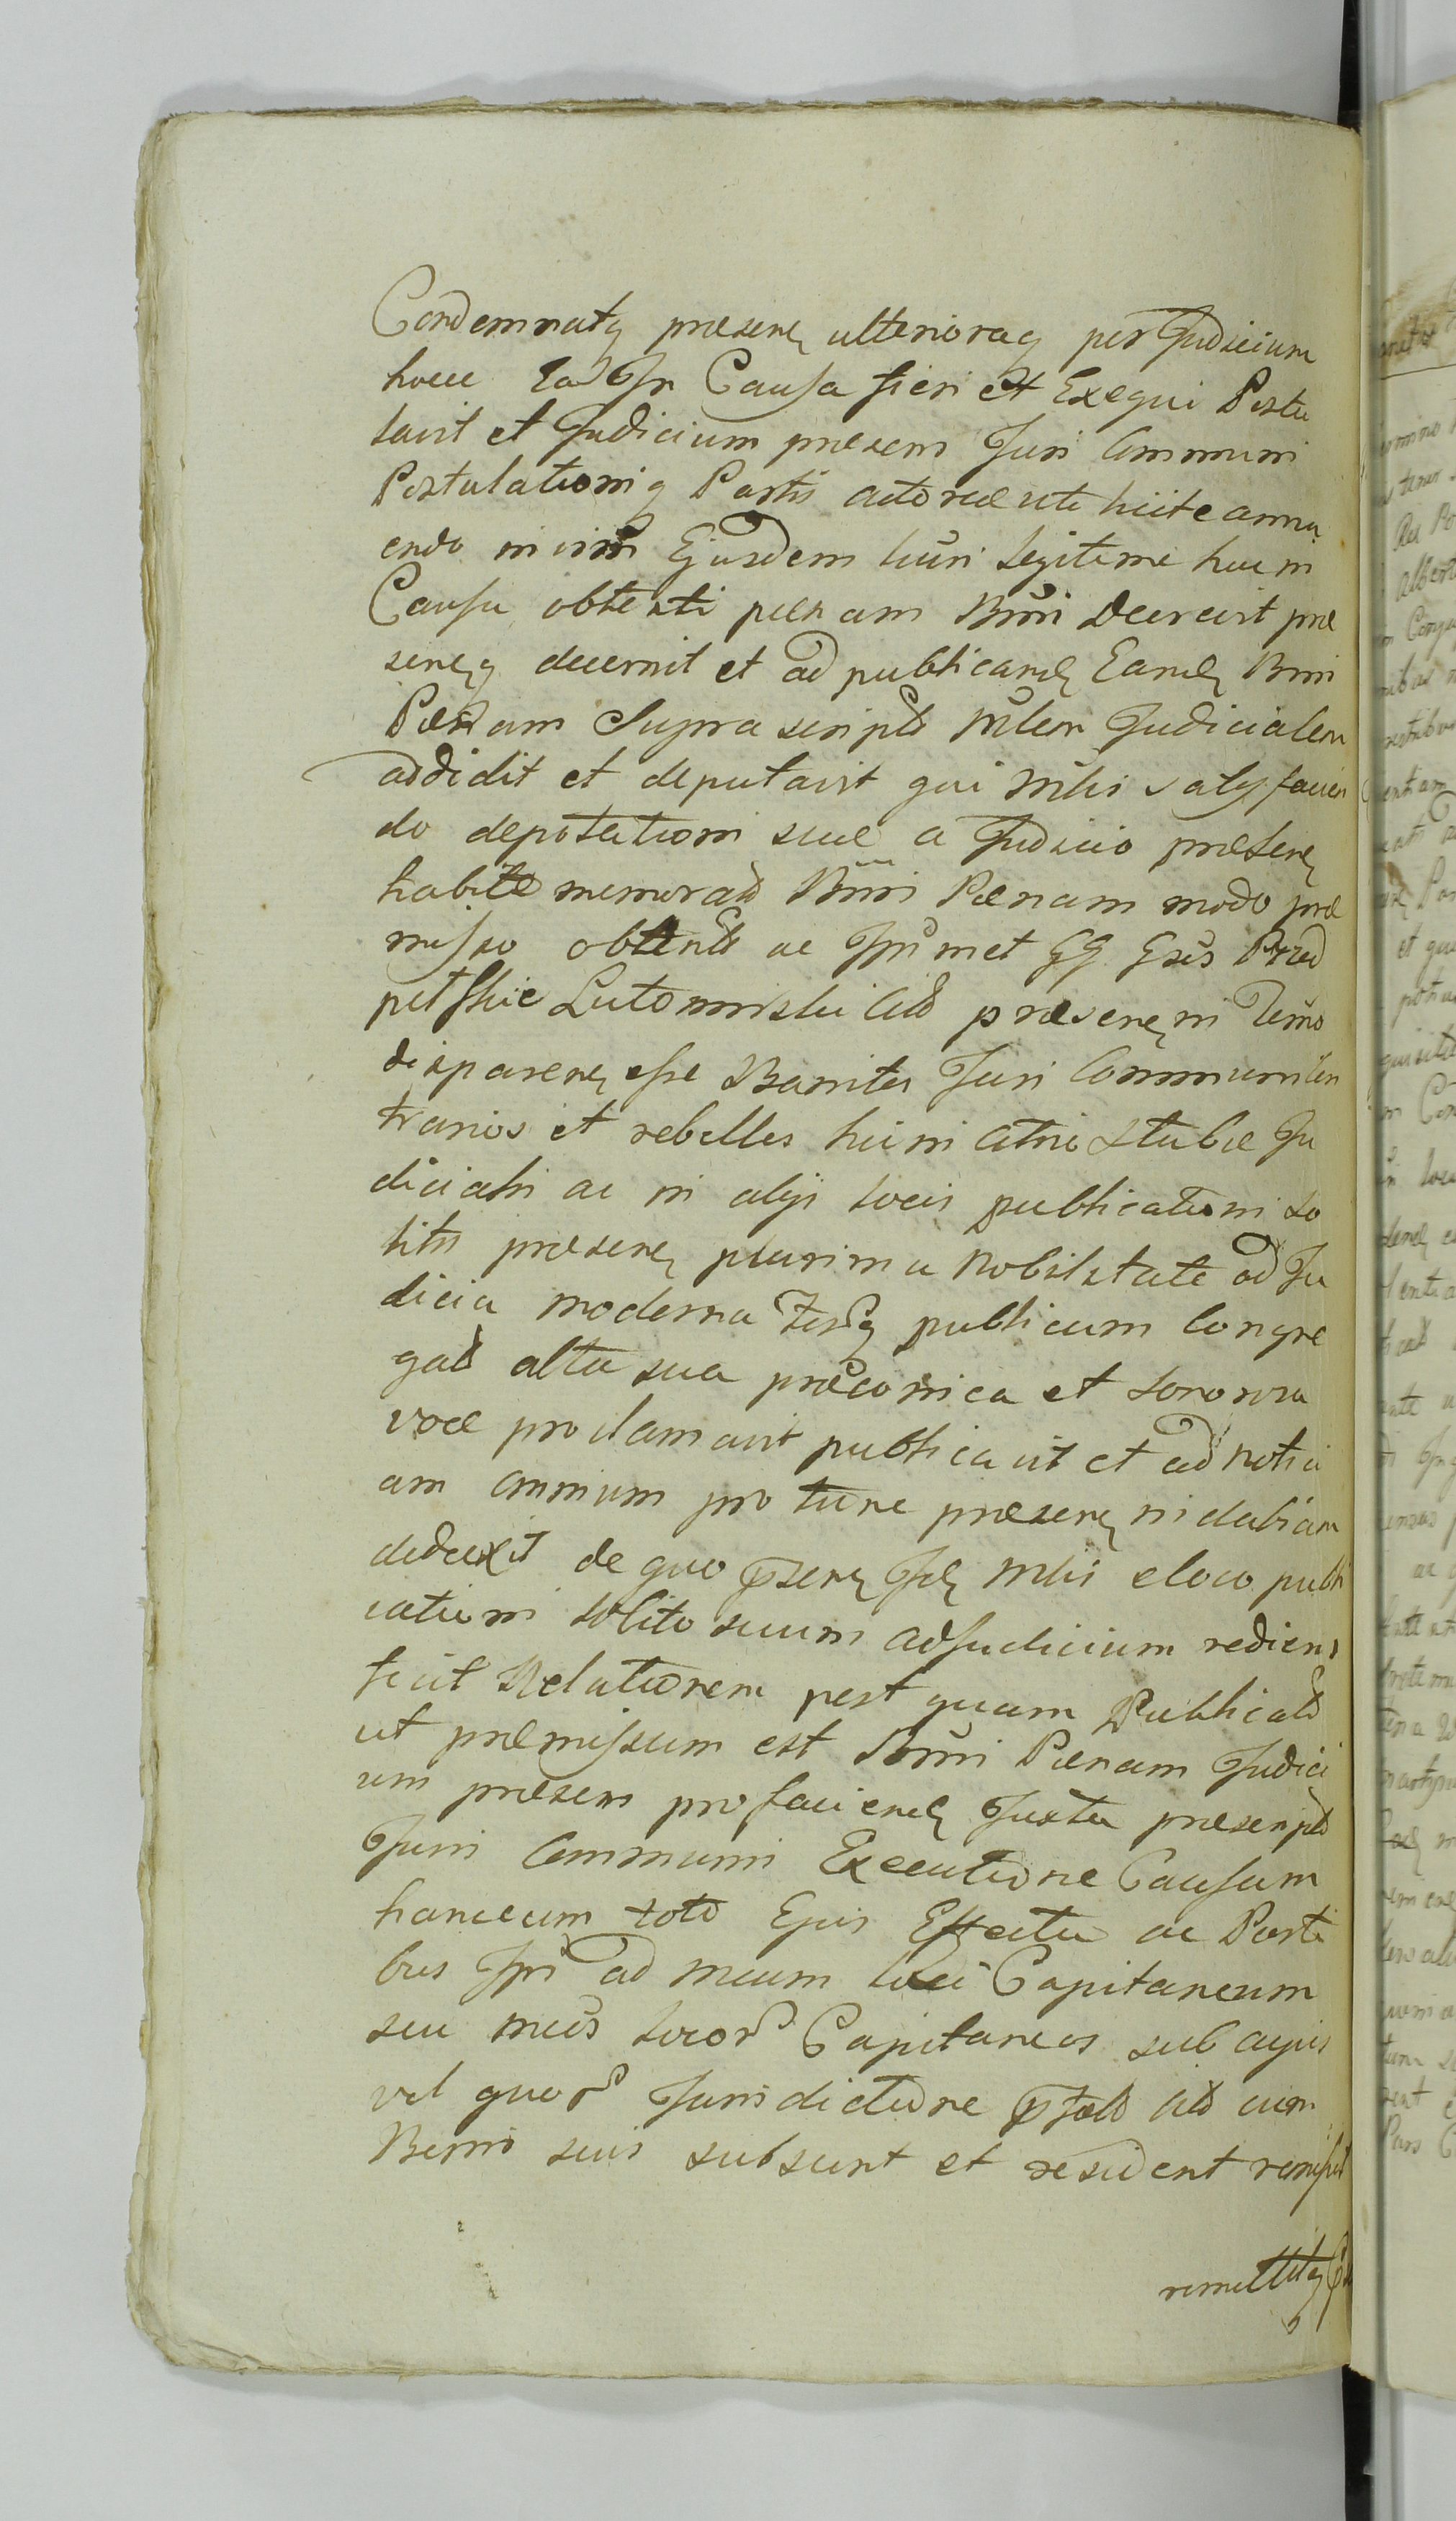 Condemnatq praesenę ulterioraq per Judicium
hocce Ead In Causa fieri et Exequi Postu
lavit et Judicium praesens Juri Communi
Postulationiq Partis actoreae uti licite annu
endo in vim Ejusdem lucri legitime hac in
Causa obtenti paenam Bnni decrevit prae
senęq decernit et ad publicandę Eandę Bnni
Paenam Suprascriptũ Mlem Judicialem
addidit et deputavit qui Mlis satisfacien
do deputationi suae a Judicio praesenę
habitae memoratã Bnni Paenam modo prae
misso obtentã ac Ipsmet GG Gsos
Lutomirski Cit praesenę in Termo
disparenę esse Bannitos Juri Communi Con
trarios et rebelles hic in atrio Stubae Ju
dicialis ac in alijs locis publicationi so
litis praesenę plurima Nobilitate ad Ju
dicia moderna Forq publicum Congre
gatã alta sua praeconica et sonorosa
voce proclamavit publicavit et ad notici
am omnium pro tunc praesenę indubiam
deduxit de quo psenę Idę Mlis e loco publi
cationi solito suum ad Judicium rediens
fecit Relationem post quam Publicatã
ut praemissum est Bnni Paenam Judici
um praesens pro faciendę Juxta praescriptũ
Juris Communis Executione Causam
hance cum toto Ejus Effectu ac Parti
bus Ipsi ad meum loci Capitaneum
seu meos locor Capitaneos sub cujus
vel quor Jurisdictione Citã cum
Bonis suis subsunt et resident remisit
remittitq